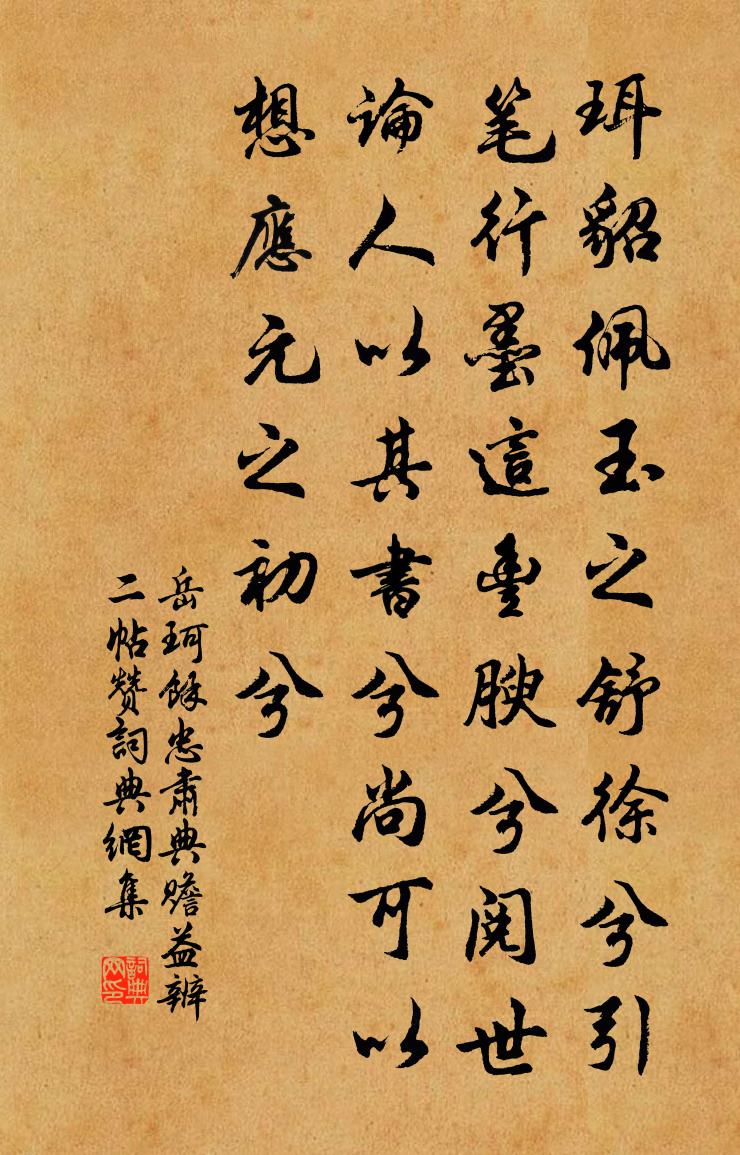 珥貂佩玉之舒徐兮引
笔行墨這豐腴兮閱世
論人以其書兮尚可以
想應元之初兮
岳珂餘忠肅典贍益辨
二帖赞詞典網集
詞典网印